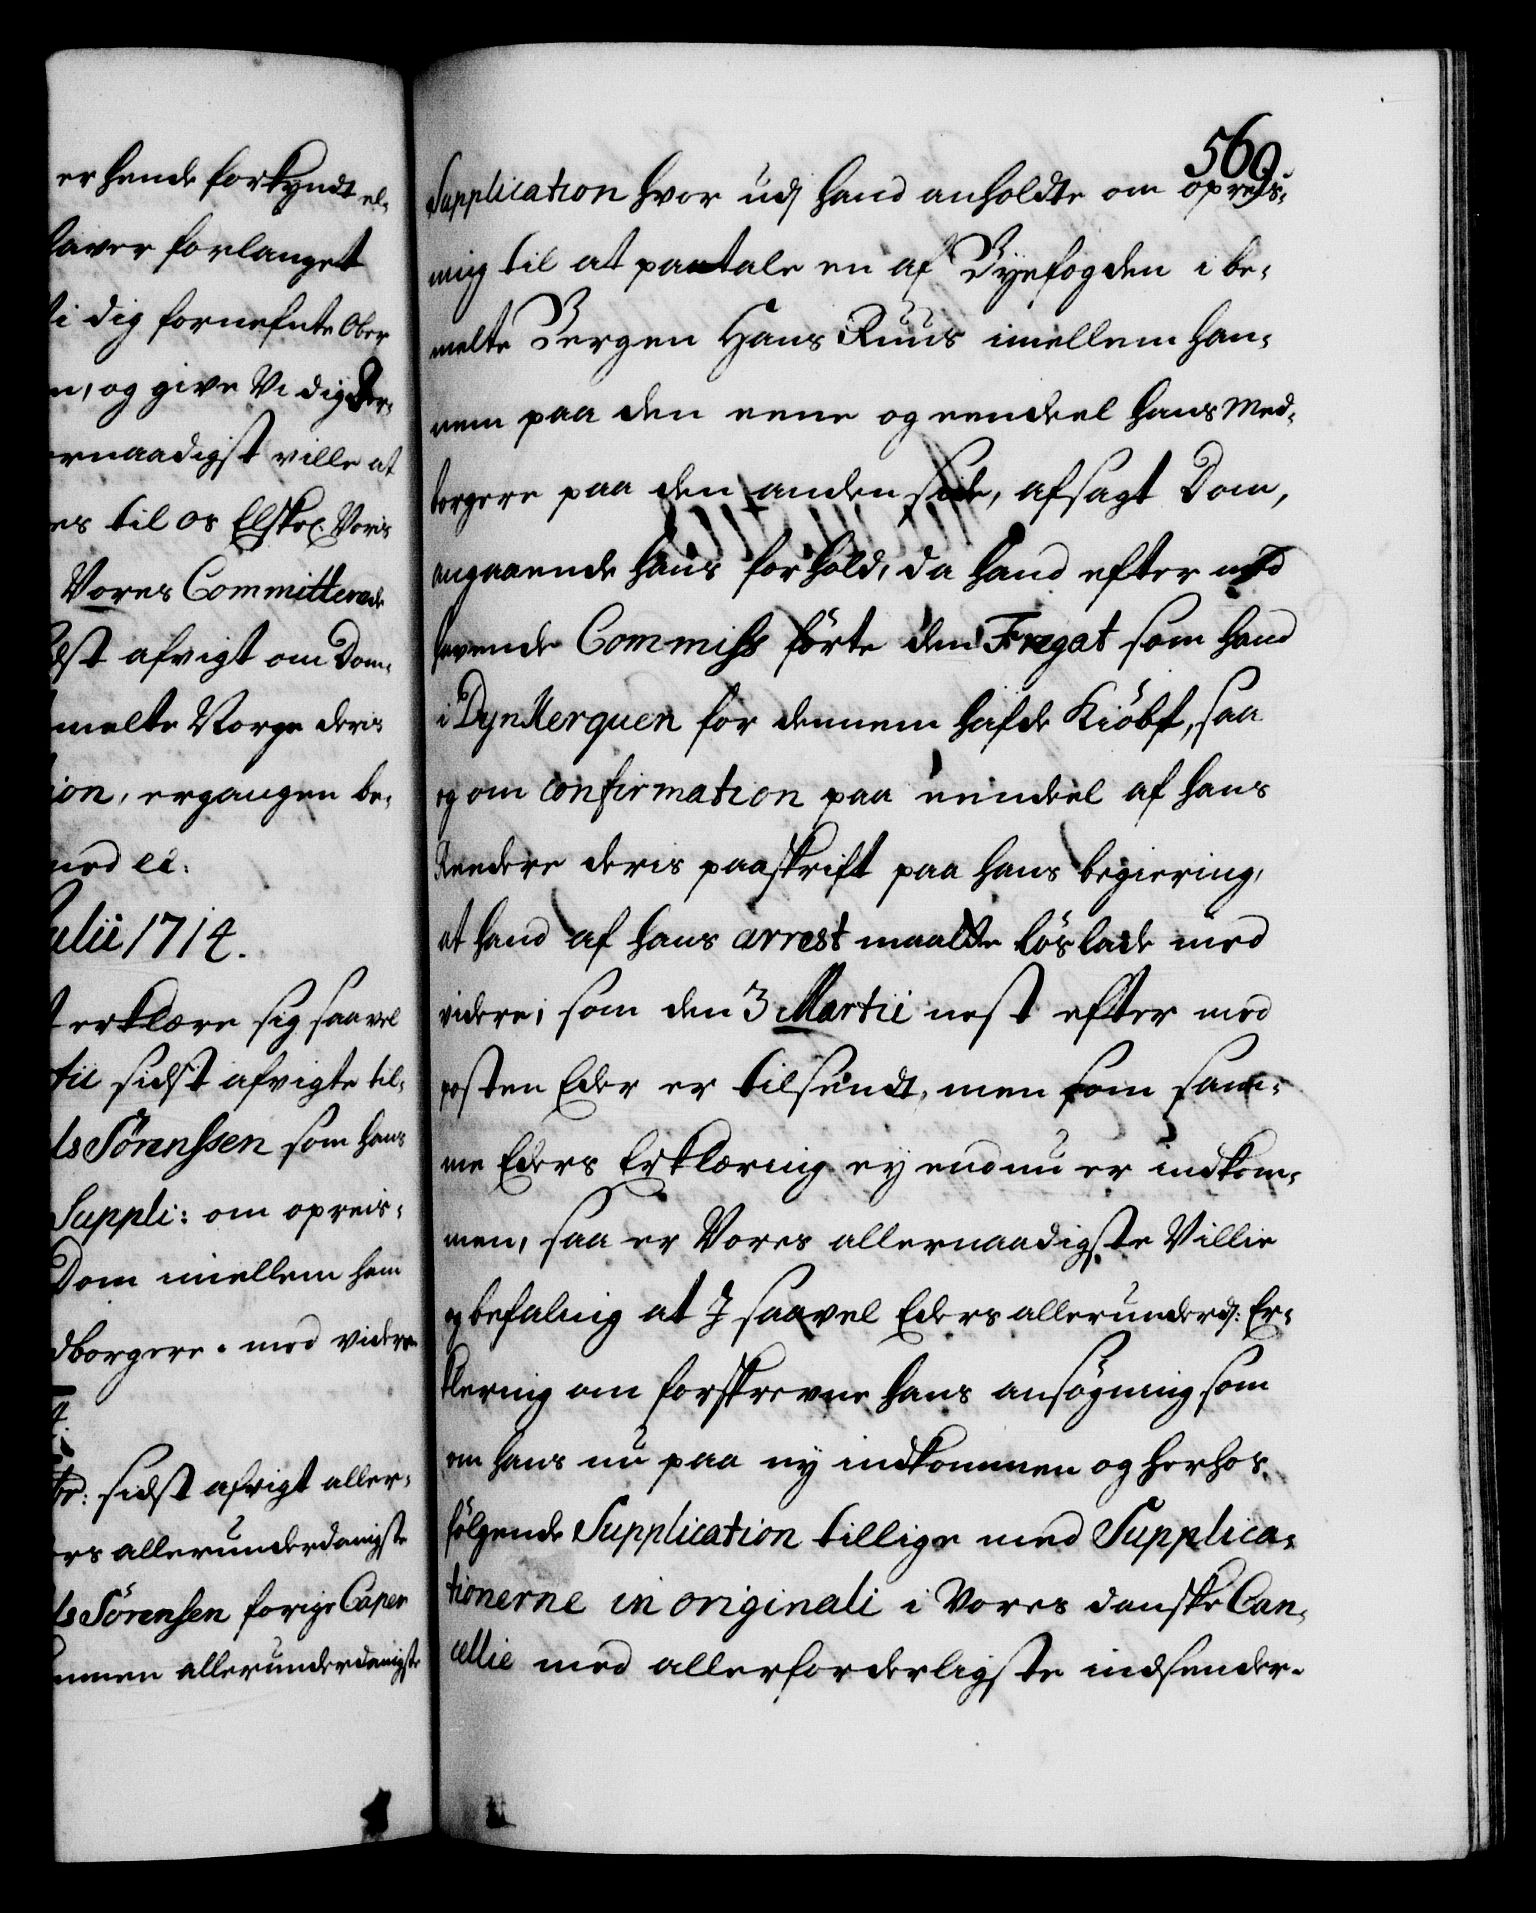 er hende forkyndt el-
haver forlanget
ti dig fornefnte Ober
n, og give Vi dig
ernaadigst ville at
es til os Elskel. Voris
Vores Committerede
idst afvigt om Dom-
melte Norge deris
ion, ergangen be-
med etc:
ulii 1714.
t erklære sig saavel
tii sidst afvigte til-
ls Sörenssen som hans
Suppli: om opreis-
Dom imellem ham
dborgere. med videre
4.
br: sidst afvigt aller-
ers allerunderdanigste
ls Sörensen forige Caper
ommen allerunderdanigste
569.
Supplication hvor udj hand anholdte om opreis-
ning til at paatale en af Byefogden i be-
melte Bergen Hans Ruus imellem han-
nem paa den eene og eendeel hans Med-
borgere paa den anden side, afsagt Dom,
angaaende hans forhold, da hand efter med
havende Commiss förte den Fregat som hand
i Dynkerquen for dennem hafde Kiöbt, saa
og om confirmation paa eendeel af hans
Reedere deris paaskrift paa hans begiering,
at hand af hans arrest maatte löslade med
videre; som den 3 Martii nest efter med
posten Eder er tilsendt, men som sam-
me Eders Erklæring ey endnu er indkom-
men, saa er Vores allernaadigste Villie
og befaling at I saavel Eders allerunderd: Er-
klering om forskrevne hans ansögning som
om hans nu paa ny indkommen og herhos
fölgende Supplication tillige med Supplica-
tionerne in originali i Vores danske Can-
cellie med allerforderligste indsender.